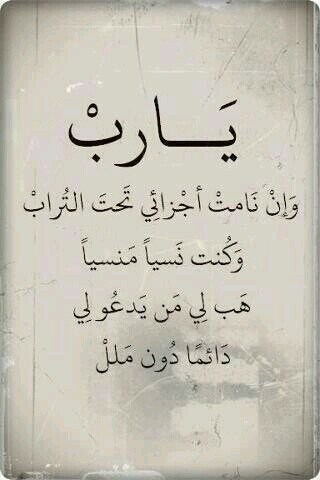 يَــاربْ
وَإنْ نَامتْ أجْزائِي تَحتَ التُرابْ
وَكُنت نَسياً مَنسياً
هَب لِي مَن يَدعُو لِي
دَائمًا دُون مَللْ